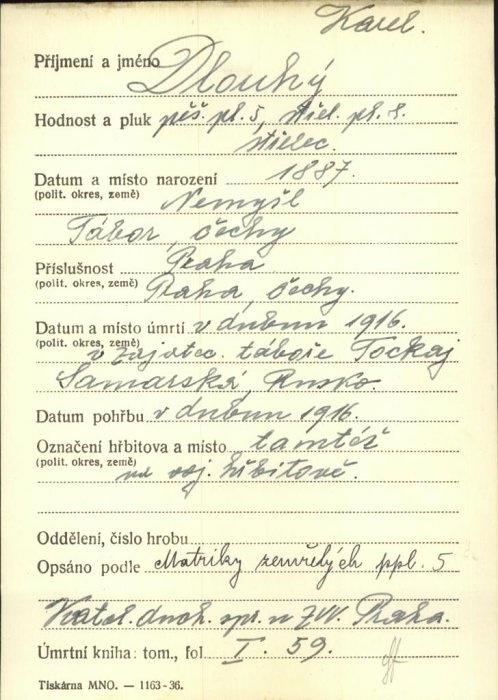 Karel.
Příjmení a jméno Dlouhý
Hodnost a pluk pěš. pl. 5, střel. pl. 8.
střelec.
Datum a místo narození 1887.
(polit. okres, země) Nemyšl
Tábor, Čechy
Příslušnost Praha
(polit. okres, země) Praha, Čechy.
Datum a místo úmrtí v dubnu 1916.
(polit. okres, země) v zajatec. táboře Tockaj
Samarská, Rusko.
Datum pohřbu v dubnu 1916.
Označení hřbitova a místo tamtéž
(polit. okres, země) na voj. hřbitově.
Oddělení, číslo hrobu
Opsáno podle Matriky zemřelých ppl. 5
Katol. duch. spr. u ZVV. Praha.
Úmrtní kniha: tom., fol. I. 59.
Tiskárna MNO. — 1163-36.